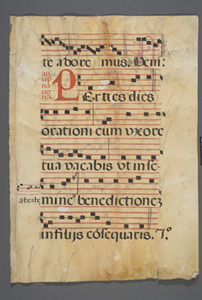 te adore mus. Dem:
Per ties dies
orationi cum vxore
tua vacabis vt in se
abrahe mine benedictionez
in filijs cōsequaris. 7.º